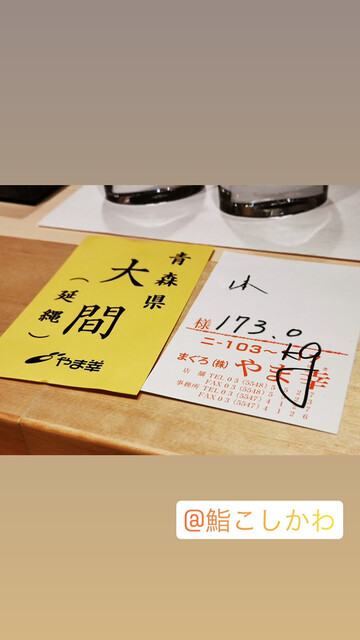 青森県
大間
(延縄)
やま幸
様 173.0
ニ-103-
まぐろ(株) やま幸
店舗 TEL 03 (5548)
FAX 03 (5548)
事務所 TEL 03 (5547)
FAX 03 (5547)
@鮨こしかわ